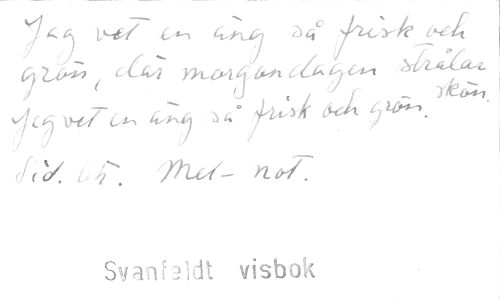 Jag vet en äng så frisk och
grön, där morgondagen strålar
skön.
Jag vet en äng så frisk och grön.
Sid. 65. Mel- not.
Svanfeldt visbok